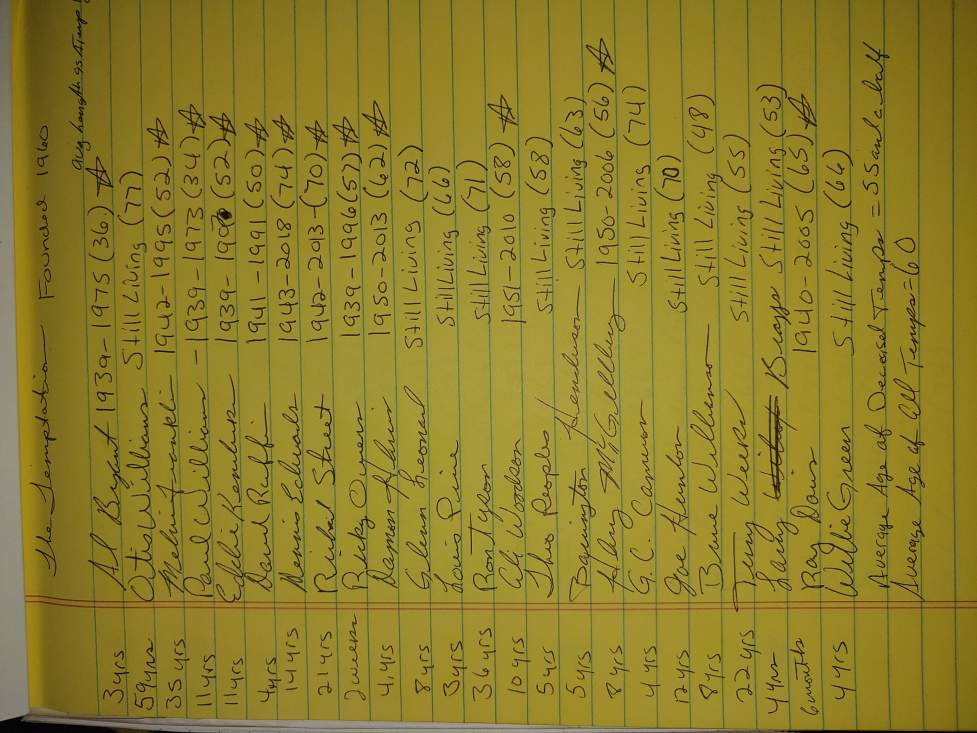 The Temptation Founded 1960
avg length as a Temp
3 yrs Al Bryant 1939-1975 (36.) ☆
59 yrs Otis Williams Still Living (77)
35 yrs Melvin Franklin 1942-1995 (52) ☆
11 yrs Paul Williams -1939-1973 (34) ☆
11 yrs Eddie Kendricks 1939-1990 (52) ☆
4 yrs David Ruffin 1941-1991 (50) ☆
14 yrs Dennis Edwards 1943-2018 (74) ☆
21 yrs Richard Street 1942-2013-(70) ☆
2 weeks Ricky Owens 1939-1996 (57) ☆
4 yrs Damon Harris 1950-2013 (62) ☆
8 yrs Glenn Leonard Still Living (72)
3 yrs Louis Price Still Living (66)
36 yrs Ron Tyson Still Living (71)
10 yrs Ali Woodson 1951-2010 (58) ☆
5 yrs Theo Peoples Still Living (58)
5 yrs Barrington Henderson Still Living (63)
8 yrs Harry McGilberry 1950-2006 (56) ☆
4 yrs G.C. Cameron Still Living (74)
12 yrs Joe Herndon Still Living (70)
8 yrs Bruce Williamson Still Living (48)
22 yrs Terry Weeks Still Living (55)
4 yrs Larry Braggs Still Living (53)
6 months Ray Davis 1940-2005 (65) ☆
4 yrs Willie Green Still Living (66)
Average Age of Deceased Temps = 55 and a half
Average Age of All Temps = 60